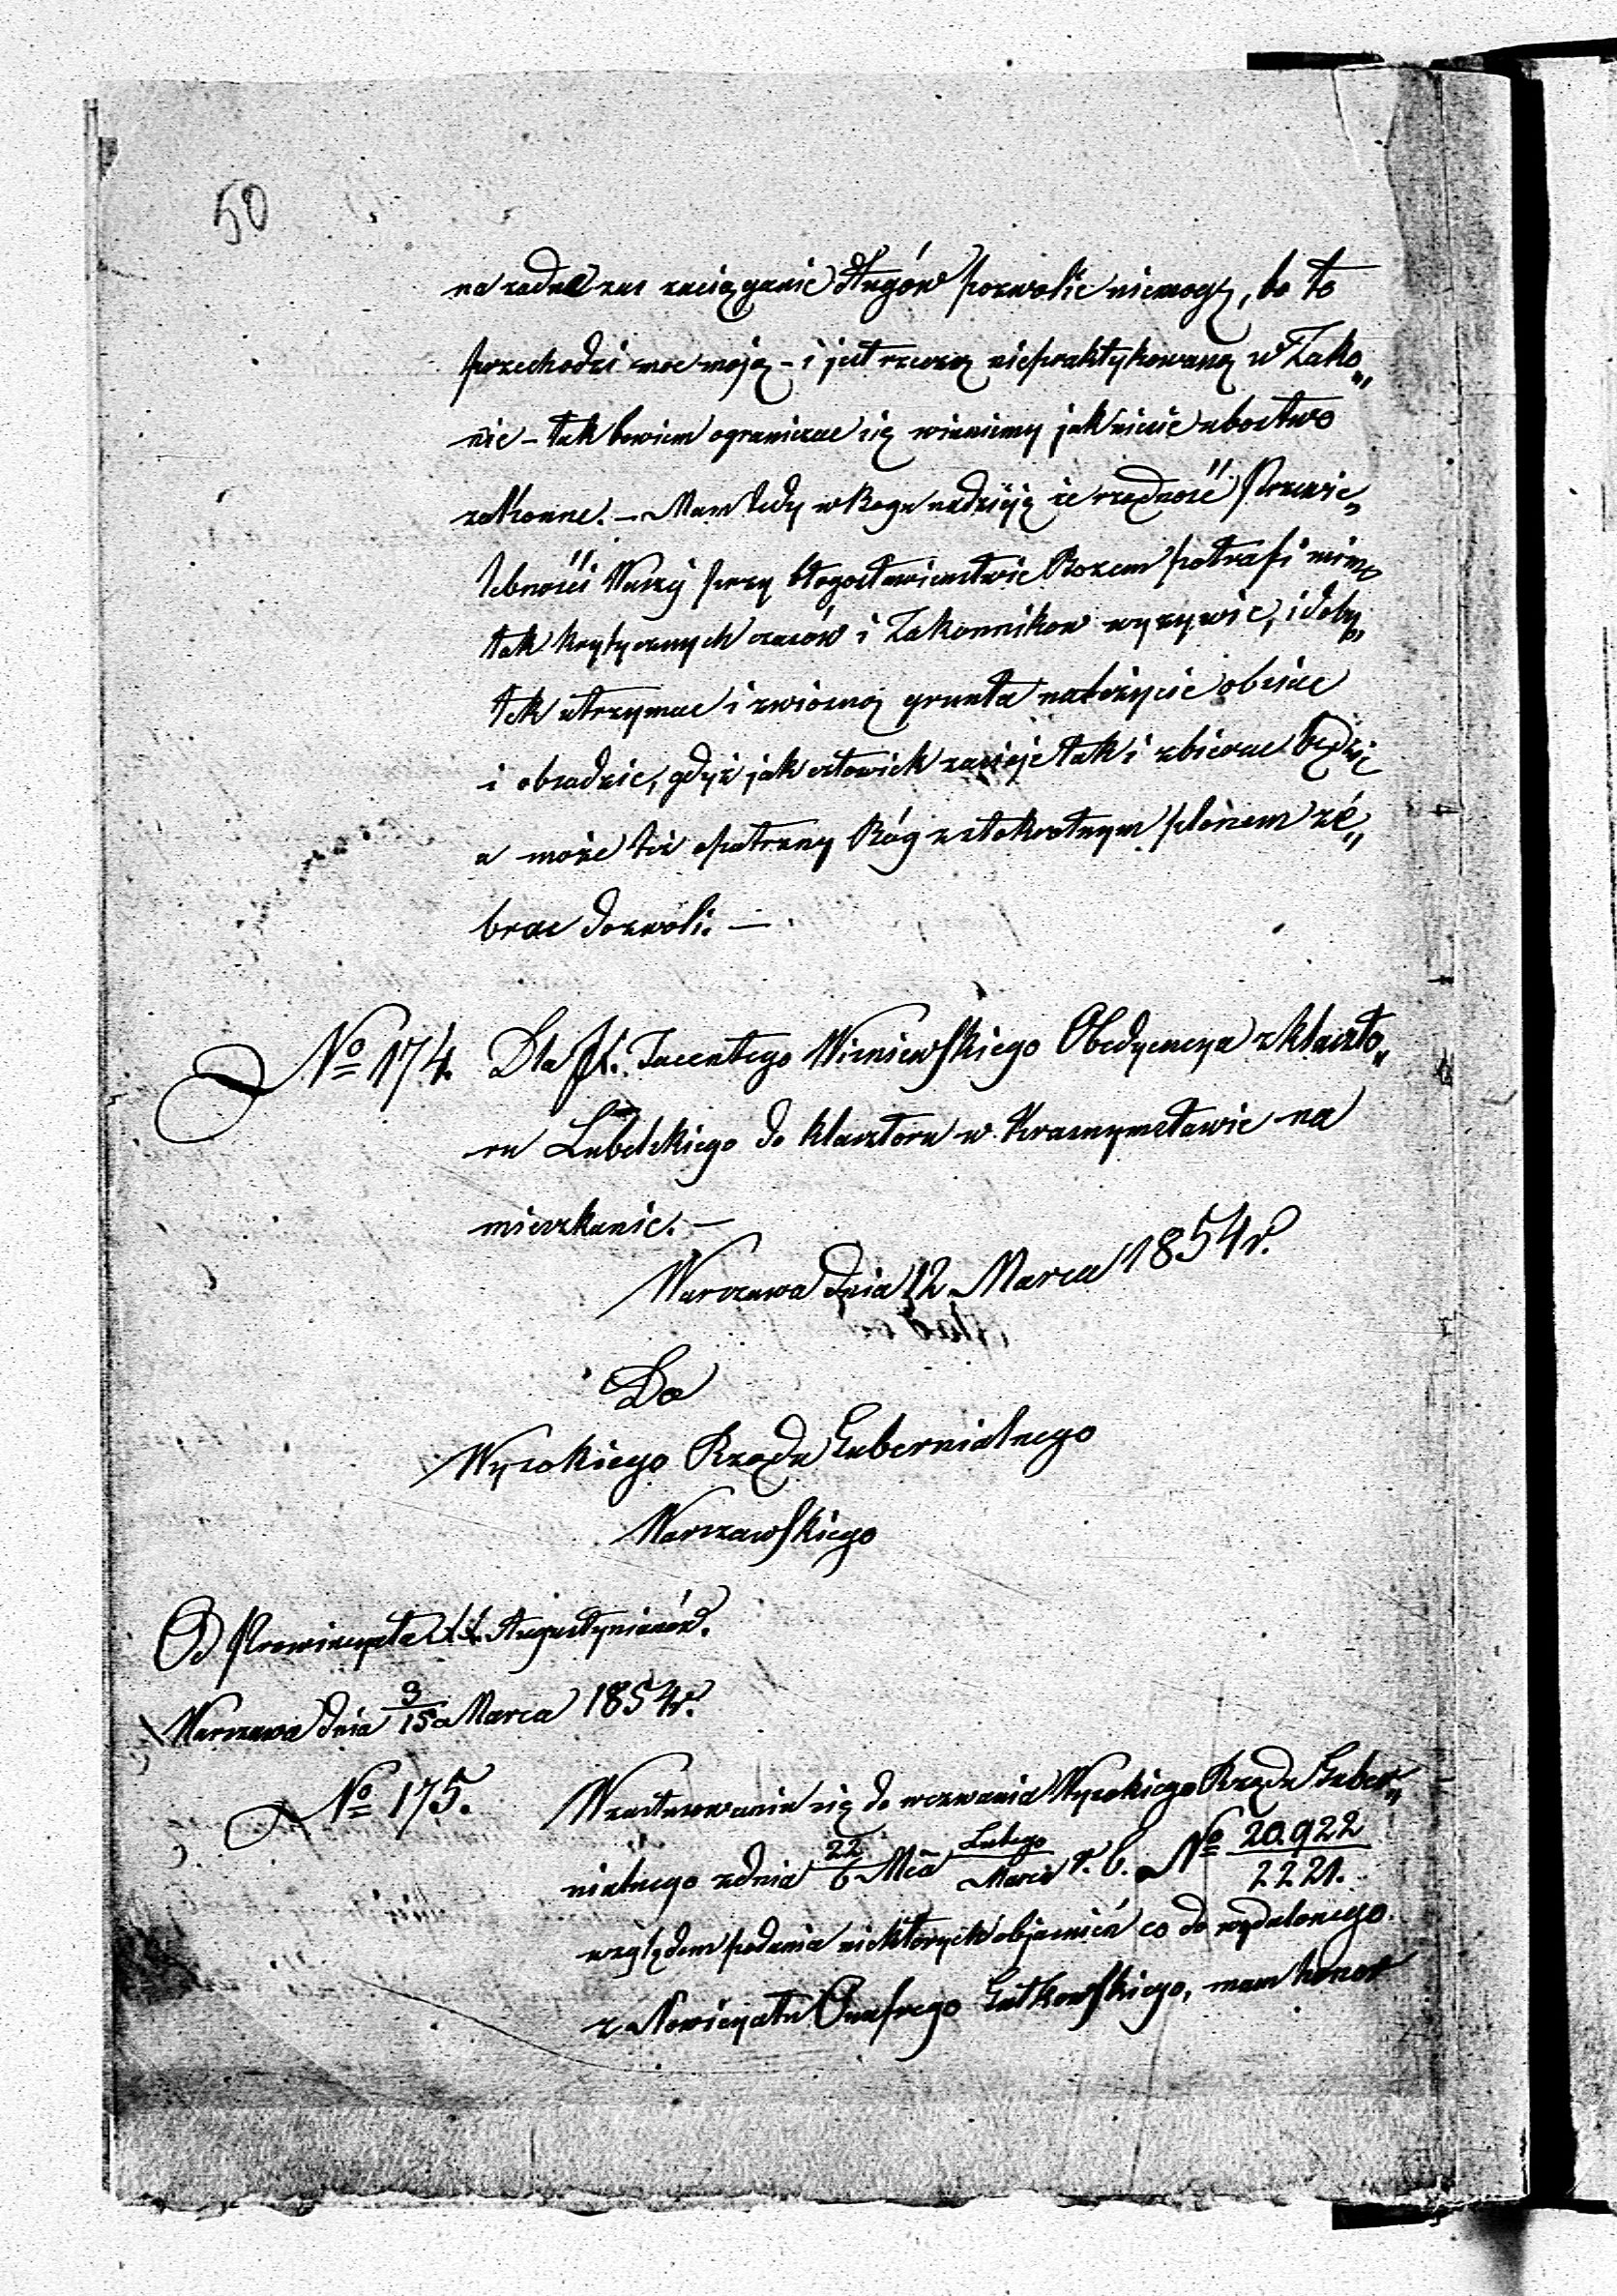 50
na żadne zas zaciąganie długów pozwolić niemogę, bo to
przechodzi moc moją – i jest rzeczą niepraktykowaną w Zako„
nie – tak bowiem ograniczac się winniemy jak niesie ubostwo
zakonne. – Mam tedy w Bogu nadzieją że rządność Przewie„
lebności Waszej przy błogosławienstwie Bozem potrafi mimo
tak krytycznych czasów i Zakonnikow wyzywic, i doby„
tek utrzymac i zwiosną grunta należycie obsiac
i obsadzic, gdyż jak człowiek zasieje tak i zbierac będzie
a może też opatrzny Bóg z stokrotnym plonem ze„
brac dozwoli. –
No 174. Dla JX. Jacentego Wisniewskiego Obedyencya z klaszto„
ru Lubelskiego do klasztoru w Krasnymstawie na
mieszkanie. –
Warszawa dnia 12 Marca 1854 r.
Do
Wysokiego Rządu Gubernialnego
Warszawskiego
Od Prowincyała XX. Augustyianów.
Warszawa dnia 3/15o Marca 1854r.
No 175. Wzastosowaniu się do wezwania Wysokiego Rządu Guber„
nialnego z dnia 22/6 Mca Lutego/Marca r. b. No 20.922/2221.
względem podania niektorych objasnień co do wydalonego
z Nowicyatu Onufrego Gutkowskiego, mam honor